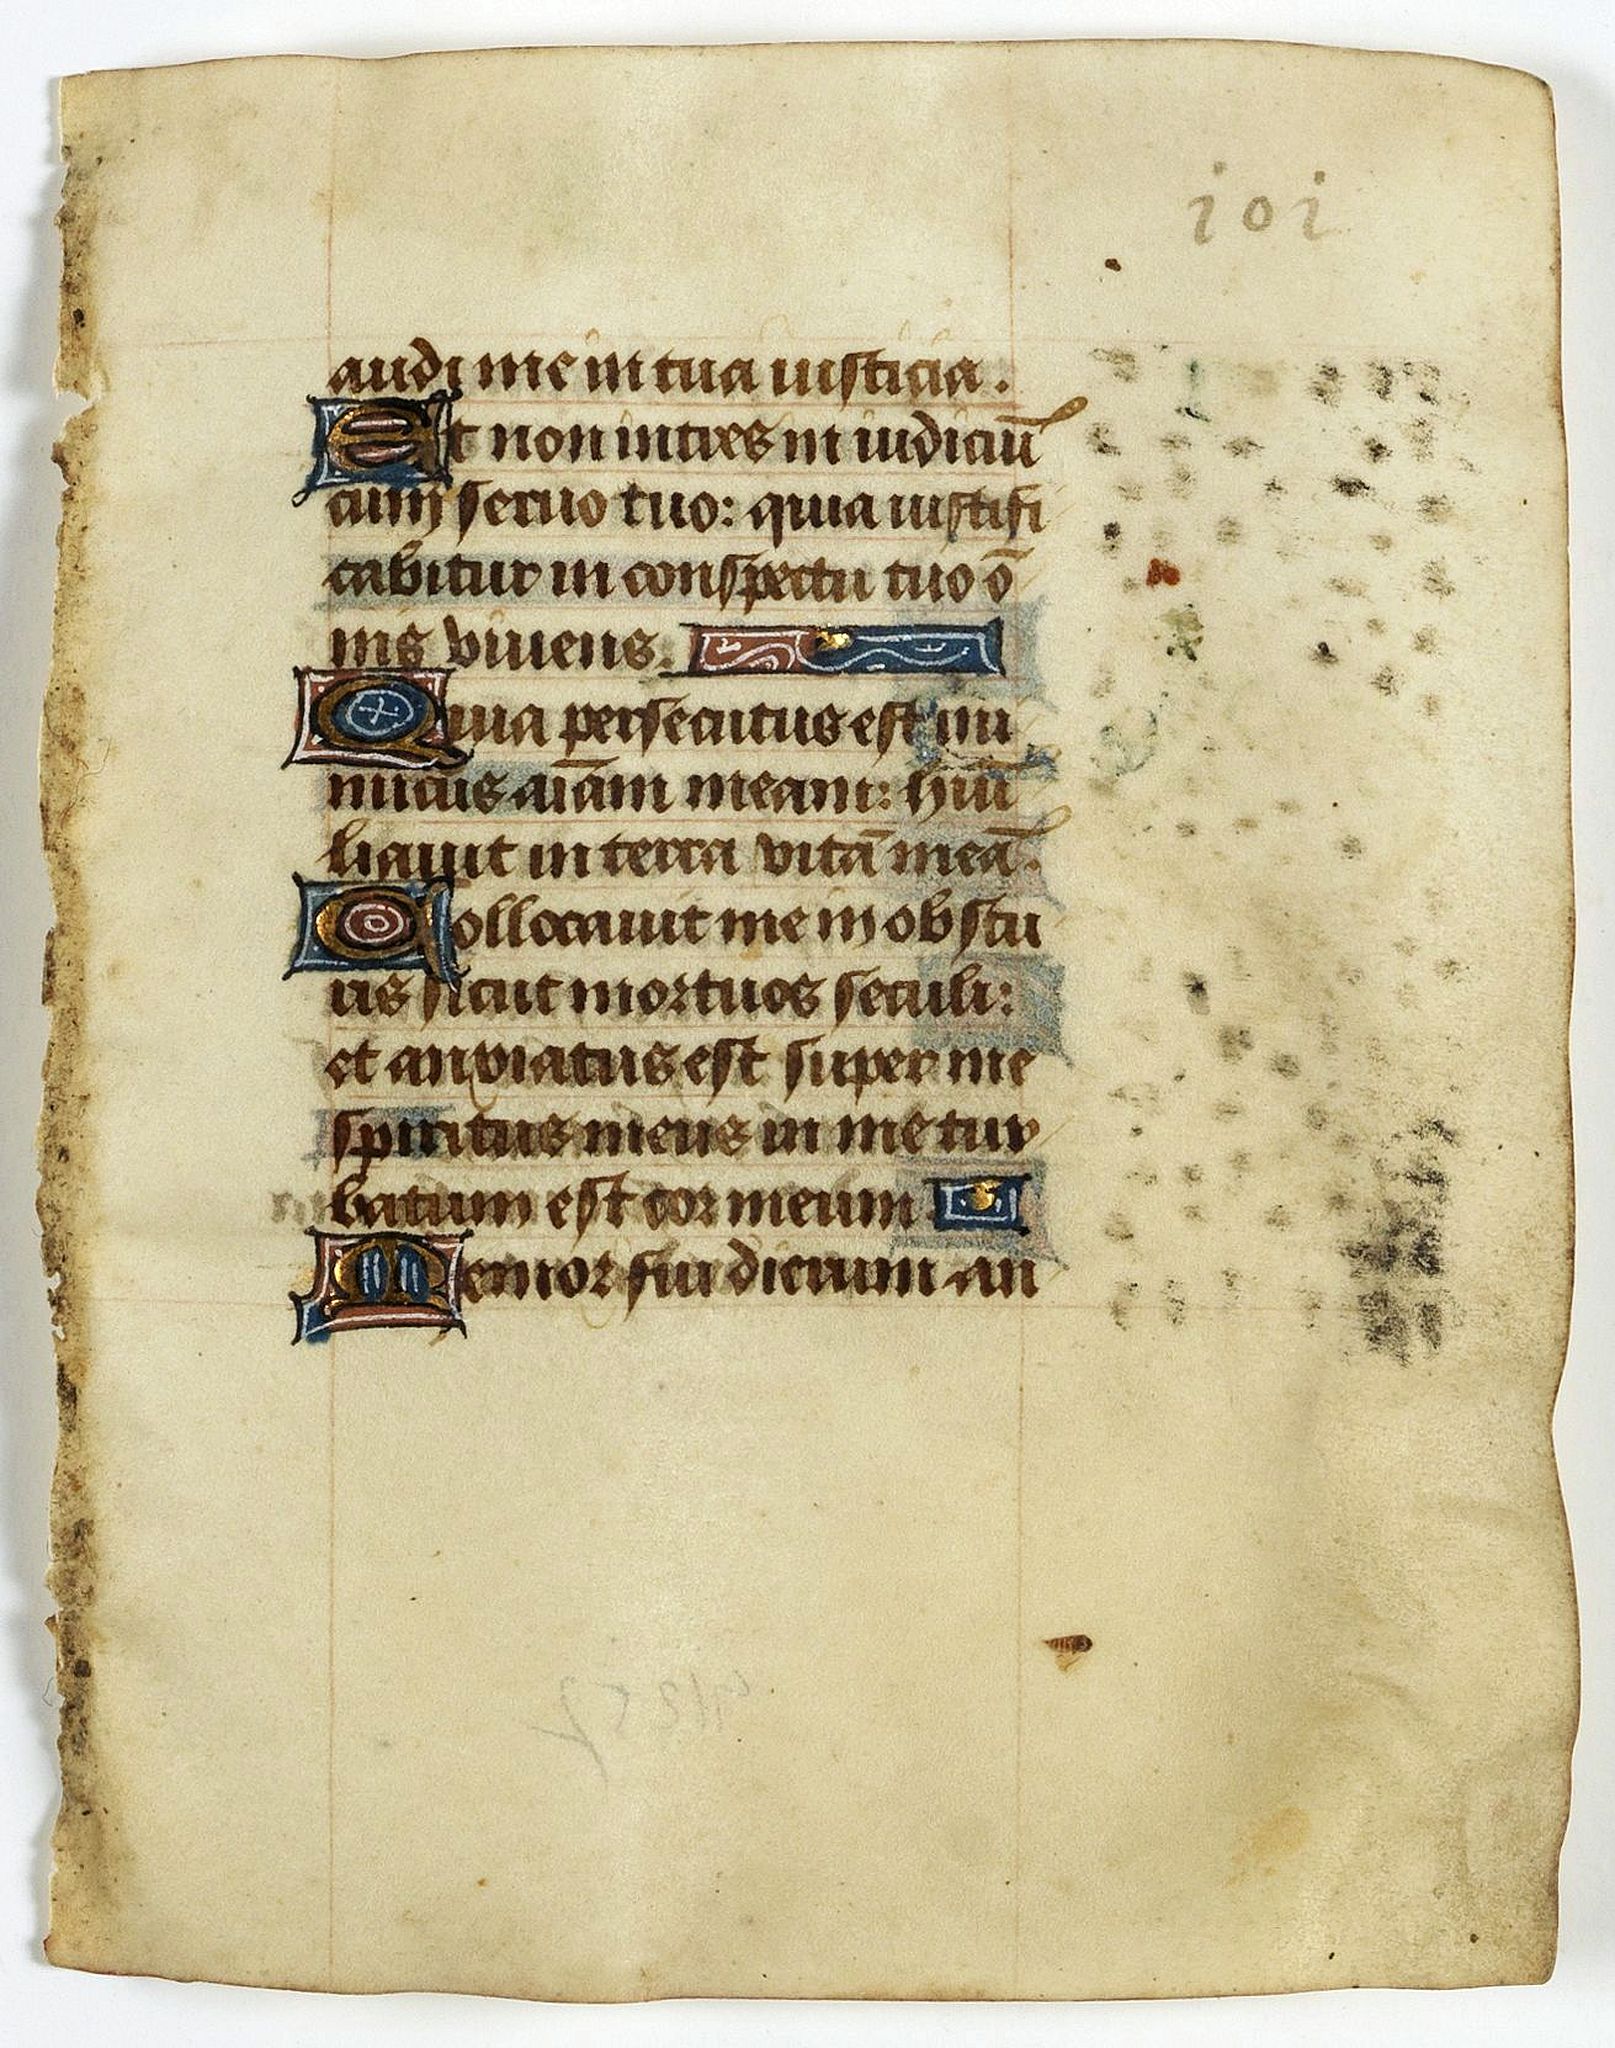 ioi
audi me in tua iusticia.
Et non intres in iudiciū
cum seruo tuo: quia iustifi
cabitur in conspectu tuo ō
nis viuens.
Quia persecutus est ini
micus aīam meam: hūi
liauit in terra vitā meā.
Collocauit me in obscu
ris sicut mortuos seculi:
et anxiatus est super me
spiritus meus in me tur
batum est cor meum
Memor fui dierum an